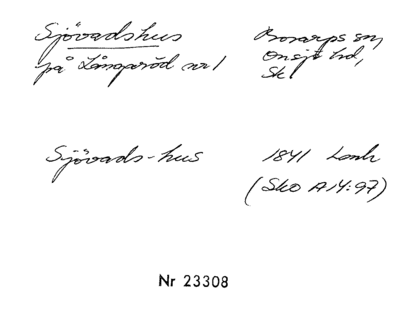 Sjövadshus Bosarps sn,
på Långaröd nr 1 Onsjö hd,
Sk
Sjövads-hus 1841 Lantm
(Sko A14:97)
Nr 23308